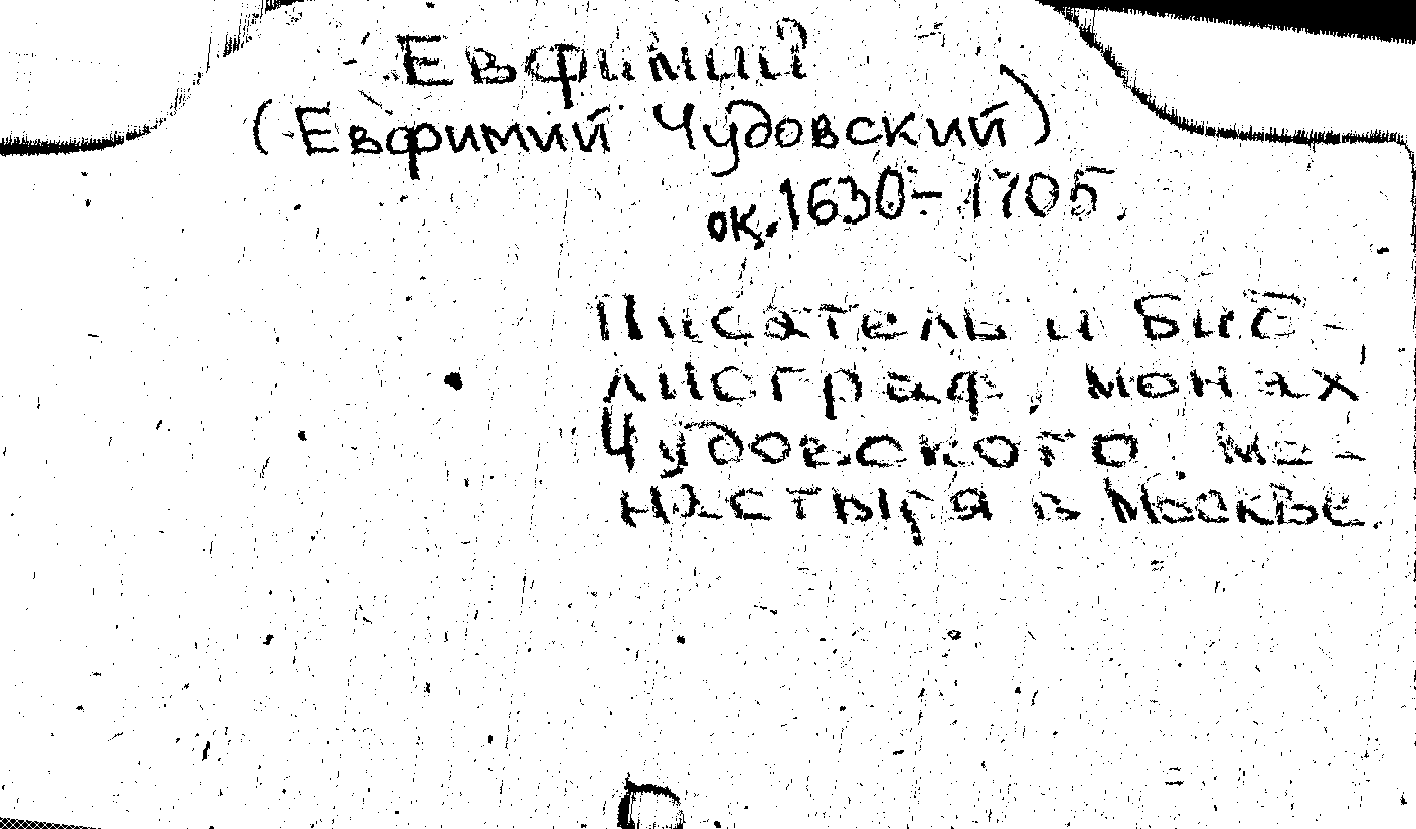 Евфимий
(Евфимий Чудовский)
ок. 1630-1705.
Писатель и биб-
лиограф, монах
Чудовского мо-
настыря в Москве.